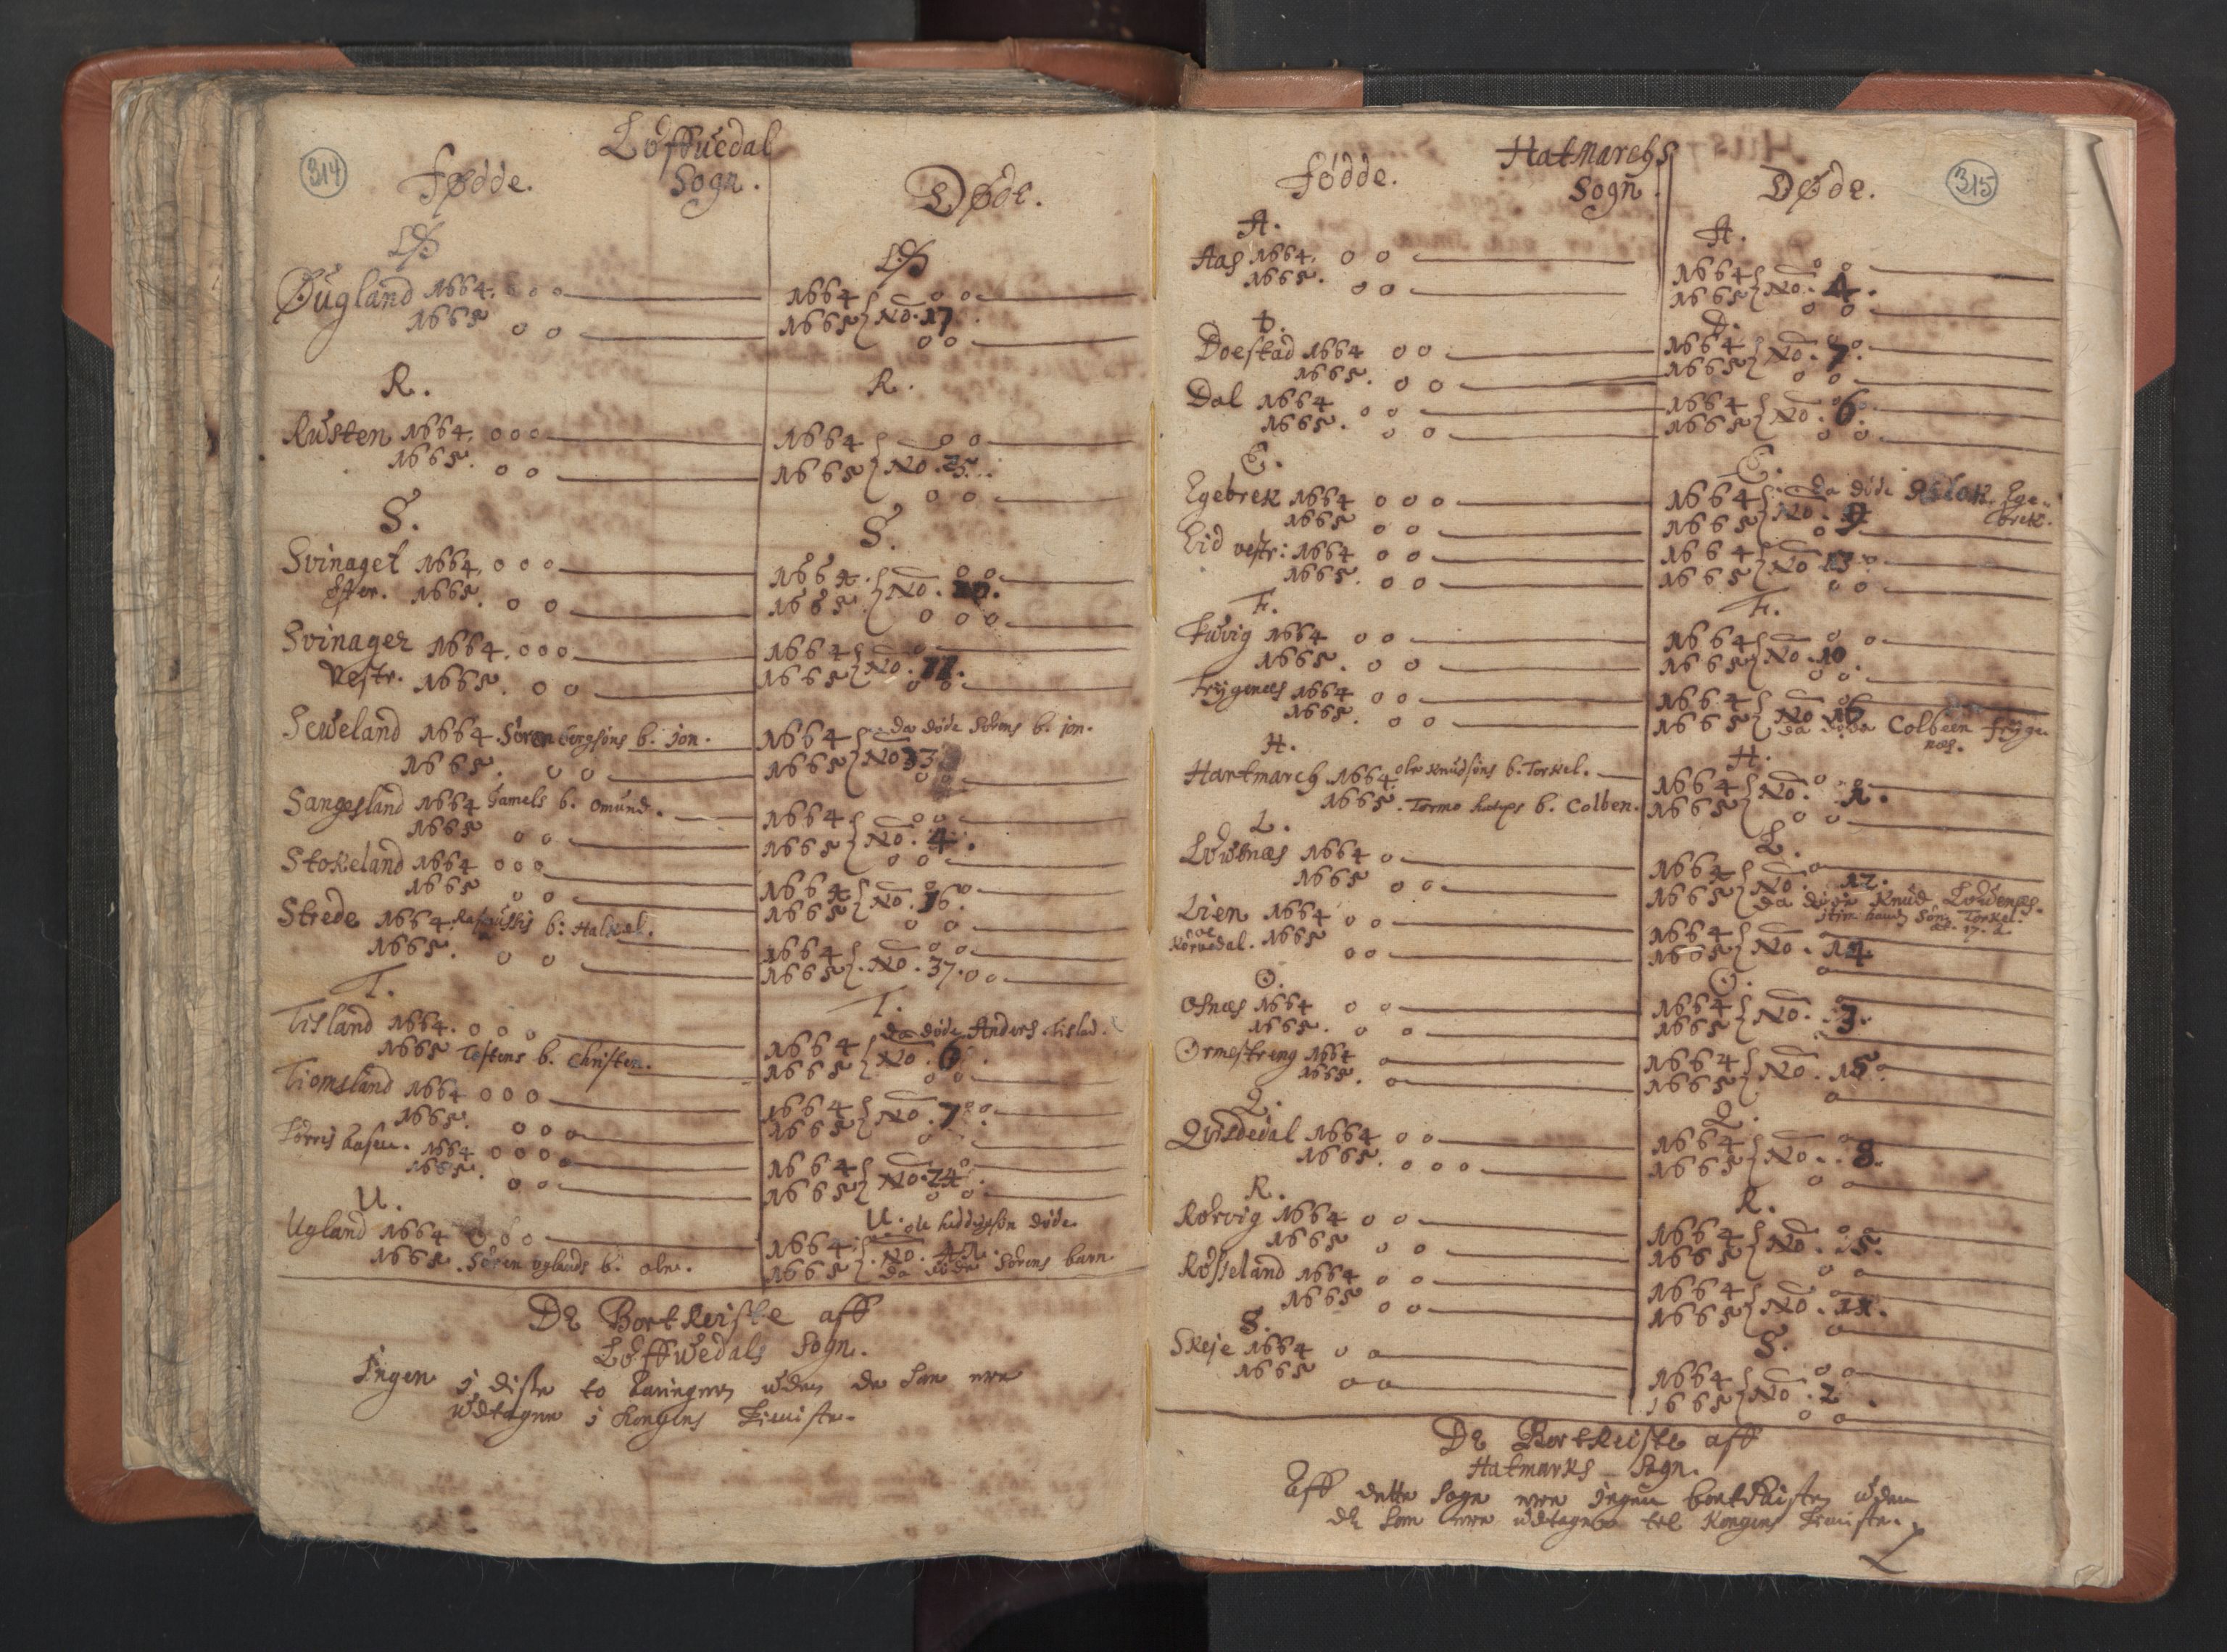 314
Løffuedal
Sogn.
Fødde.
Døde.
Ø
Ø
Øugland 1664. o o o
1665 o o
1664
1665 } No. 17.
o o
o o
R.
R.
Rusten 1664. o o o
1665. o o
1664
1665 } No.
o o
o o
S.
S.
Svinaget 1664. o o o
Øster. 1665. o o
1664.
1665 } No.
o o
o o o
Svinager 1664. o o o
Vestr. 1665. o o
1664
1665 } No. 11.
o
o o
Seweland 1664. Søren bergsøns b. jon.
1665. o o
1664 da døde Sørens b. jon.
1665 } No 33
o o
Sangesland 1664 Gamels b. omund.
1665 o o
1664
1665 } No. 4.
o o
o o
Stokeland 1664 o o o
1665 o o
1664
1665 } No. 36.
o o
o o
Strede 1664. b: Halkel.
1665. o o
1664
1665 } No. 37. o o
o o
T.
T.
Tisland 1664. o o o
1665 Tostens b. Christen.
1664 da døde Anders Tislad.
1665 } No. 6.
o o
Tiomsland 1664 o o o
1665. o o o
1664
1665 } No. 7.
o o
o
1664 o o o o
1665. o o
1664
1665 } No. 24.
o
o o
U.
U.
Ugland 1664 o o o
1665. Søren uglands b. ole.
1664. ole døde.
1665 } No.
da døde Sørens barn
De Bortreiste aff
Løffwedals Sogn.
Ingen j disse to uden de som ere
udtagne j Kongens Tieniste.
315
Hatmarchs
Sogn.
Fødde.
Døde.
A.
A.
Aas 1664. o o
1665. o o
1664
1665 } No. 4.
o o
o o
D.
D.
Doestad 1664 o o
1665. o o
1664
1665 } No. 7.
o o
Dal 1664 o o
1665. o o
1664
1665 } No. 6.
o o
E.
E.
Egebrek 1664 o o o
1665 o o
1664 da døde Aslak Ege-
brek.
1665 } No. 9
o
Eid vestr: 1664 o o
1665. o o
1664
1665 } No. 13.
o o
F.
F.
Fuvig 1664 o o
1665. o o
1664
1665 } No. 10
o o
o o
Frygenæs 1664 o o
1665. o o
1664
1665 } No 16
da døde Colbeen fryge
næs.
H.
H.
Hartmarch 1664. ole Knudsøns b. Torkel.
1665. Tormo b. Colben.
1664
1665 } No. 1.
o o
L.
L.
Løwenæs 1664 o
1665 o o
1664
1665 } No. 12.
da døde Knud Løwenæs.
item hans søn Torkel.
æt. 17. a.
Lien 1664 o o
oc
Kørvedal. 1665 o o
1664
1665 } No. 14
o
o
O.
O.
Osnæs 1664 o o
1665. o o
1664
1665 } No. 3.
o
Ormestreng 1664 o
1665. o
1664
1665 } No. 15.
o
Q.
Q.
Quisdedal 1664 o o
1665. o o o
1664
1665 } No. 8.
o
o o
R.
R.
Rørvig 1664 o o
1665. o o
1664
1665 } No. 5.
o o
Røsseland 1664 o o
1665 o o
1664
1665 } No. 11.
o
o
S.
S.
Skeje 1664 o o
1665 o o
1664
1665 } No. 2.
o o
o o
De Bortreiste aff
Hatmarks Sogn.
Aff dette Sogn ere jngen bortReiste uden
de som ere udtagne til Kongens Tieniste.